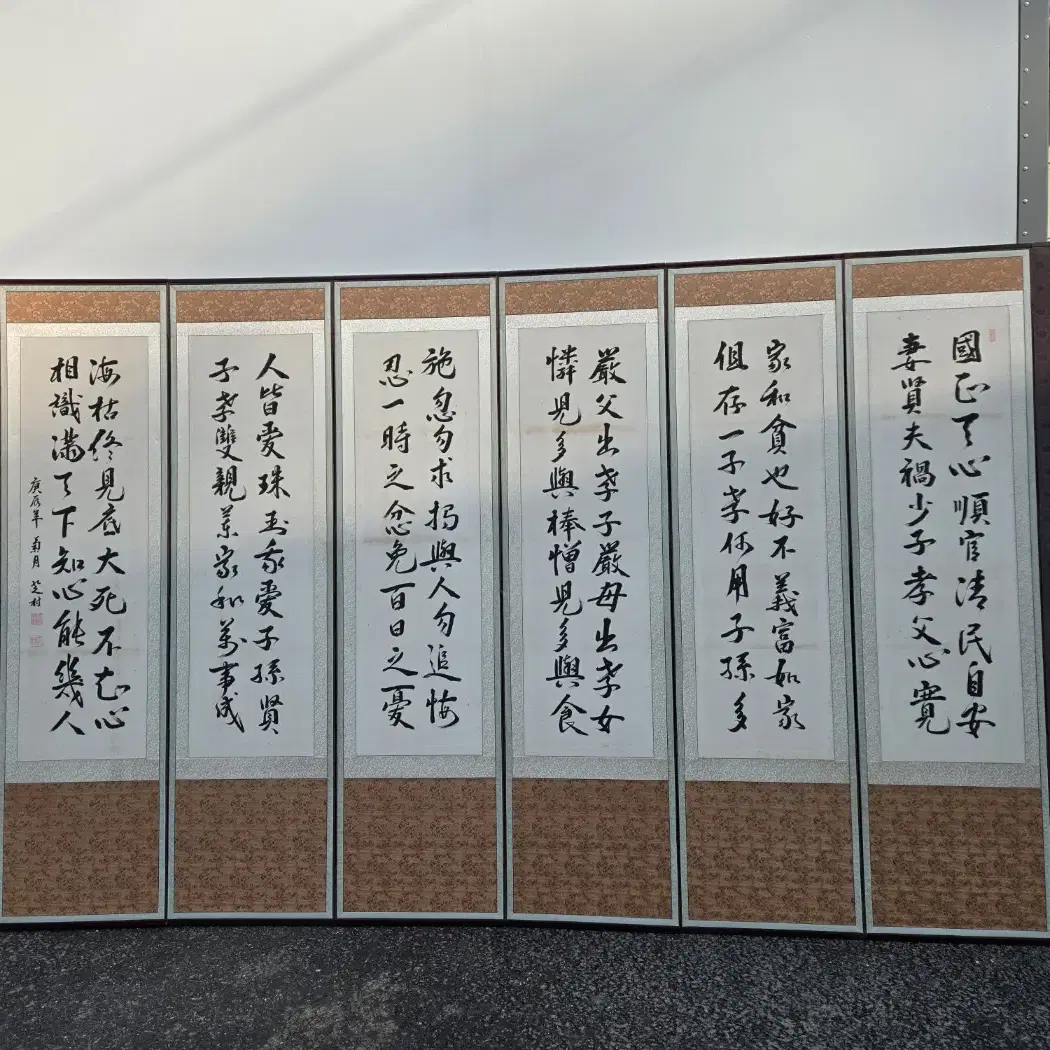 國正天心順官清民自安
妻賢夫禍少子孝父心寬
家和貧也好不義富如家
但存一子孝何用子孫多
嚴父出孝子嚴母出孝女
憐兒多與棒憎兒多與食
施忽勿求與人勿追悔
忍一時之忿免百日之憂
人皆愛珠玉我愛子孫賢
子孝雙親樂家和萬事成
海枯終見底大死不知心
相識滿天下知心能幾人
庚辰年 菊月 芝村